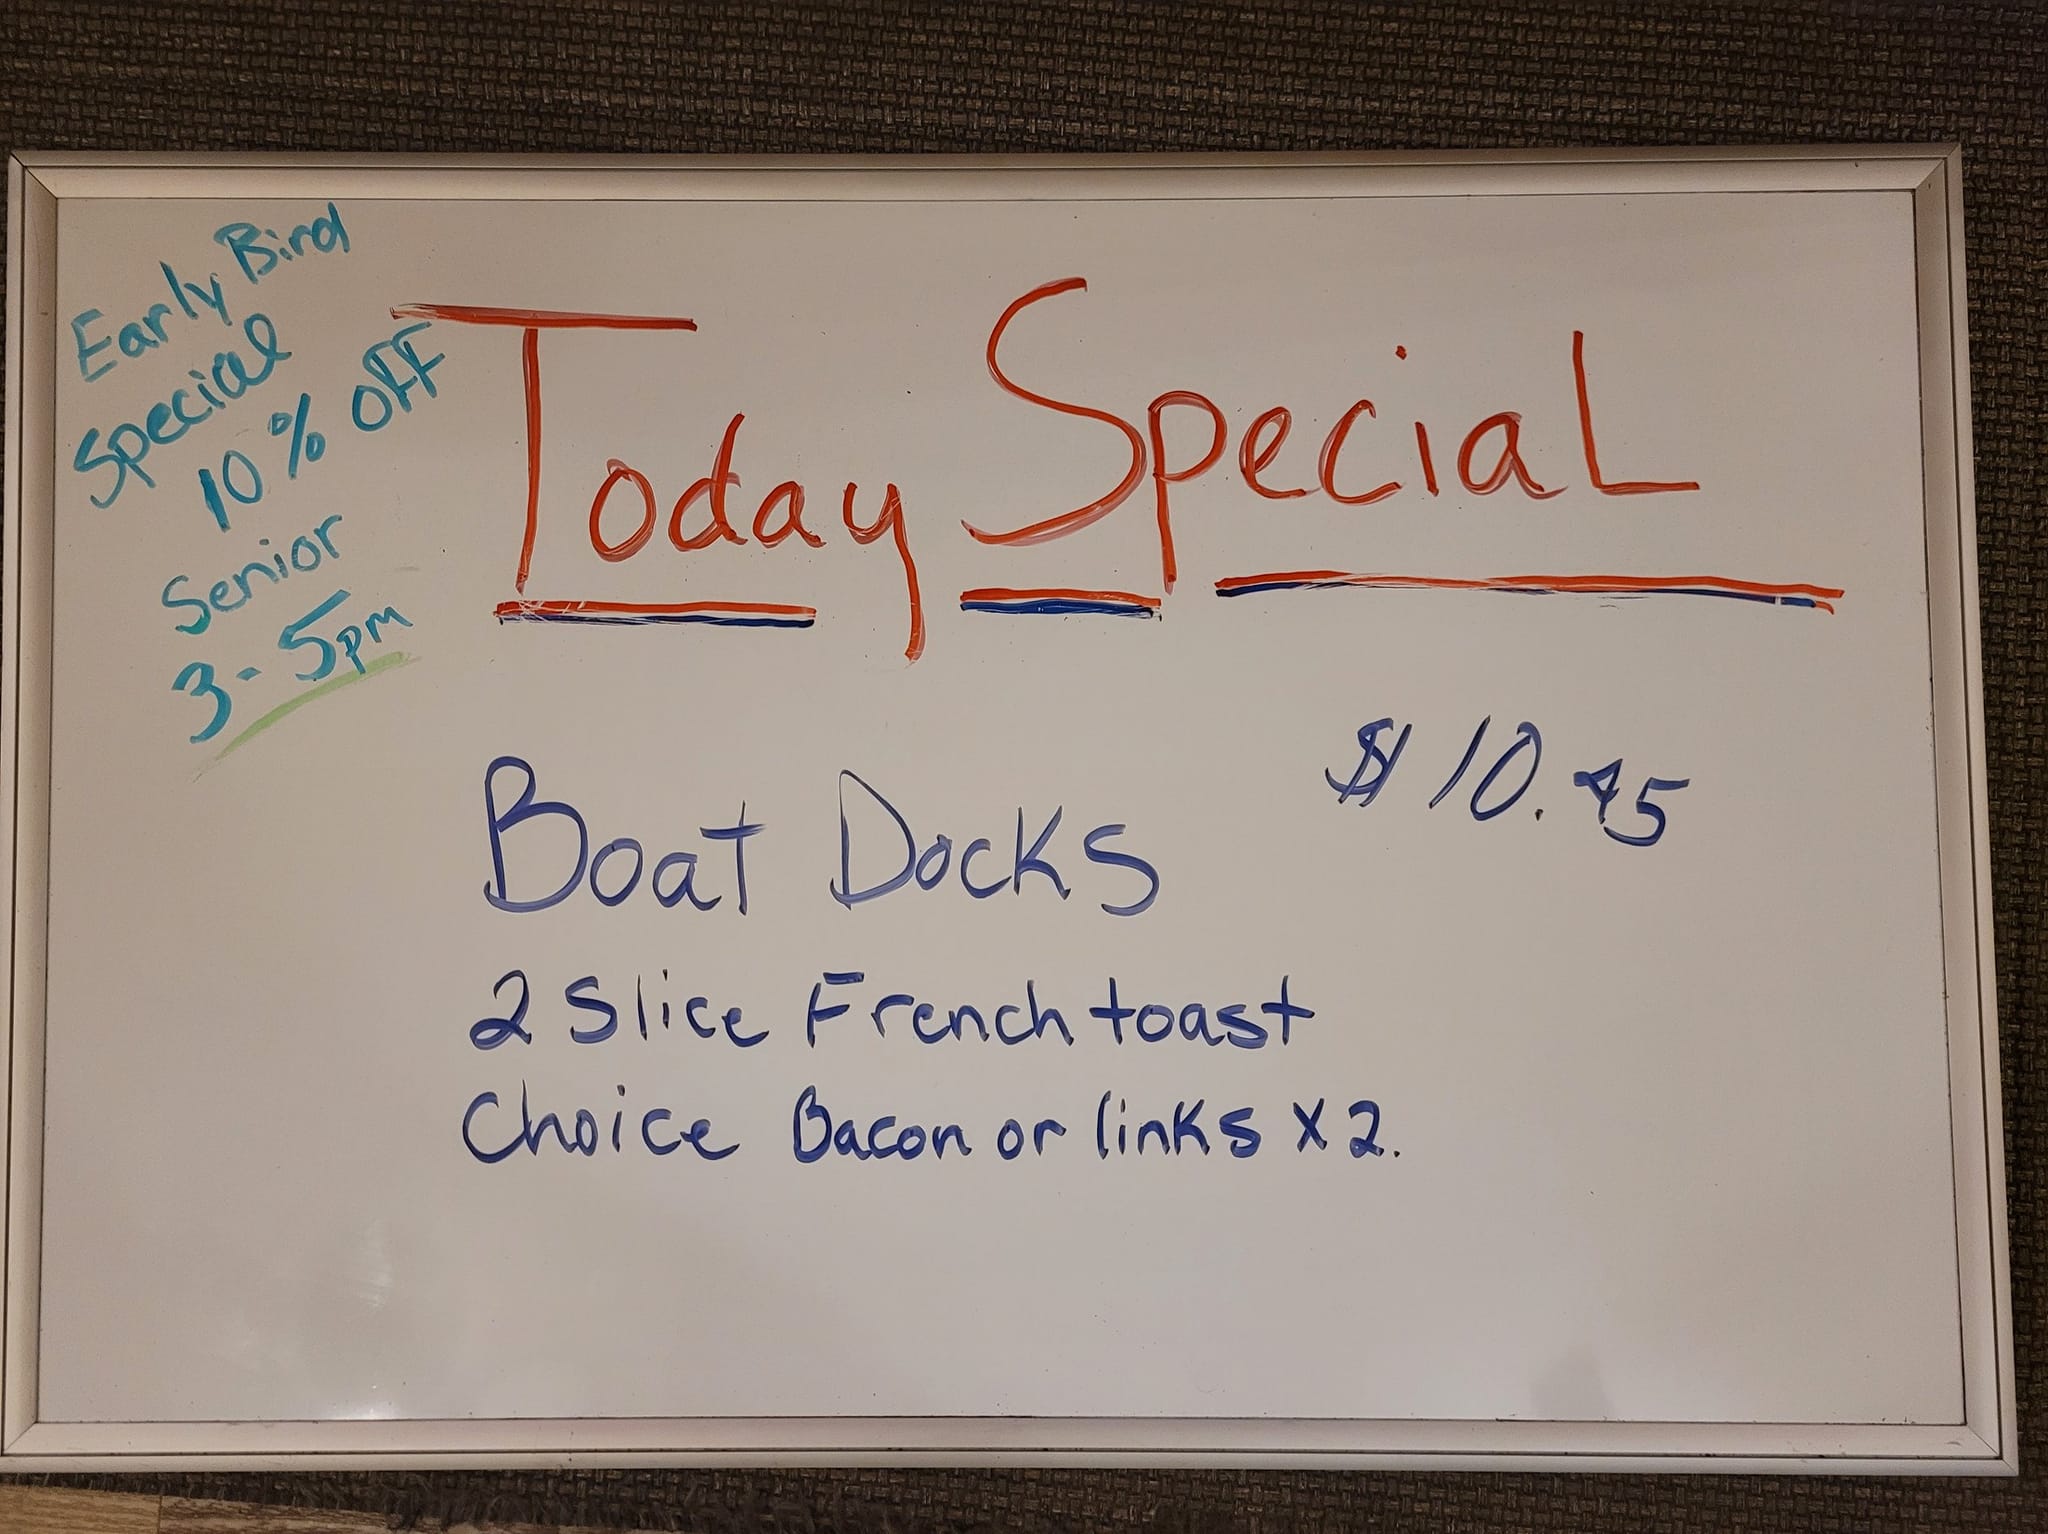 Early Bird
Special
10% OFF
Senior
3-5pm
Today Special
$10.95
Boat Docks
2 Slice French toast
Choice Bacon or links x2.